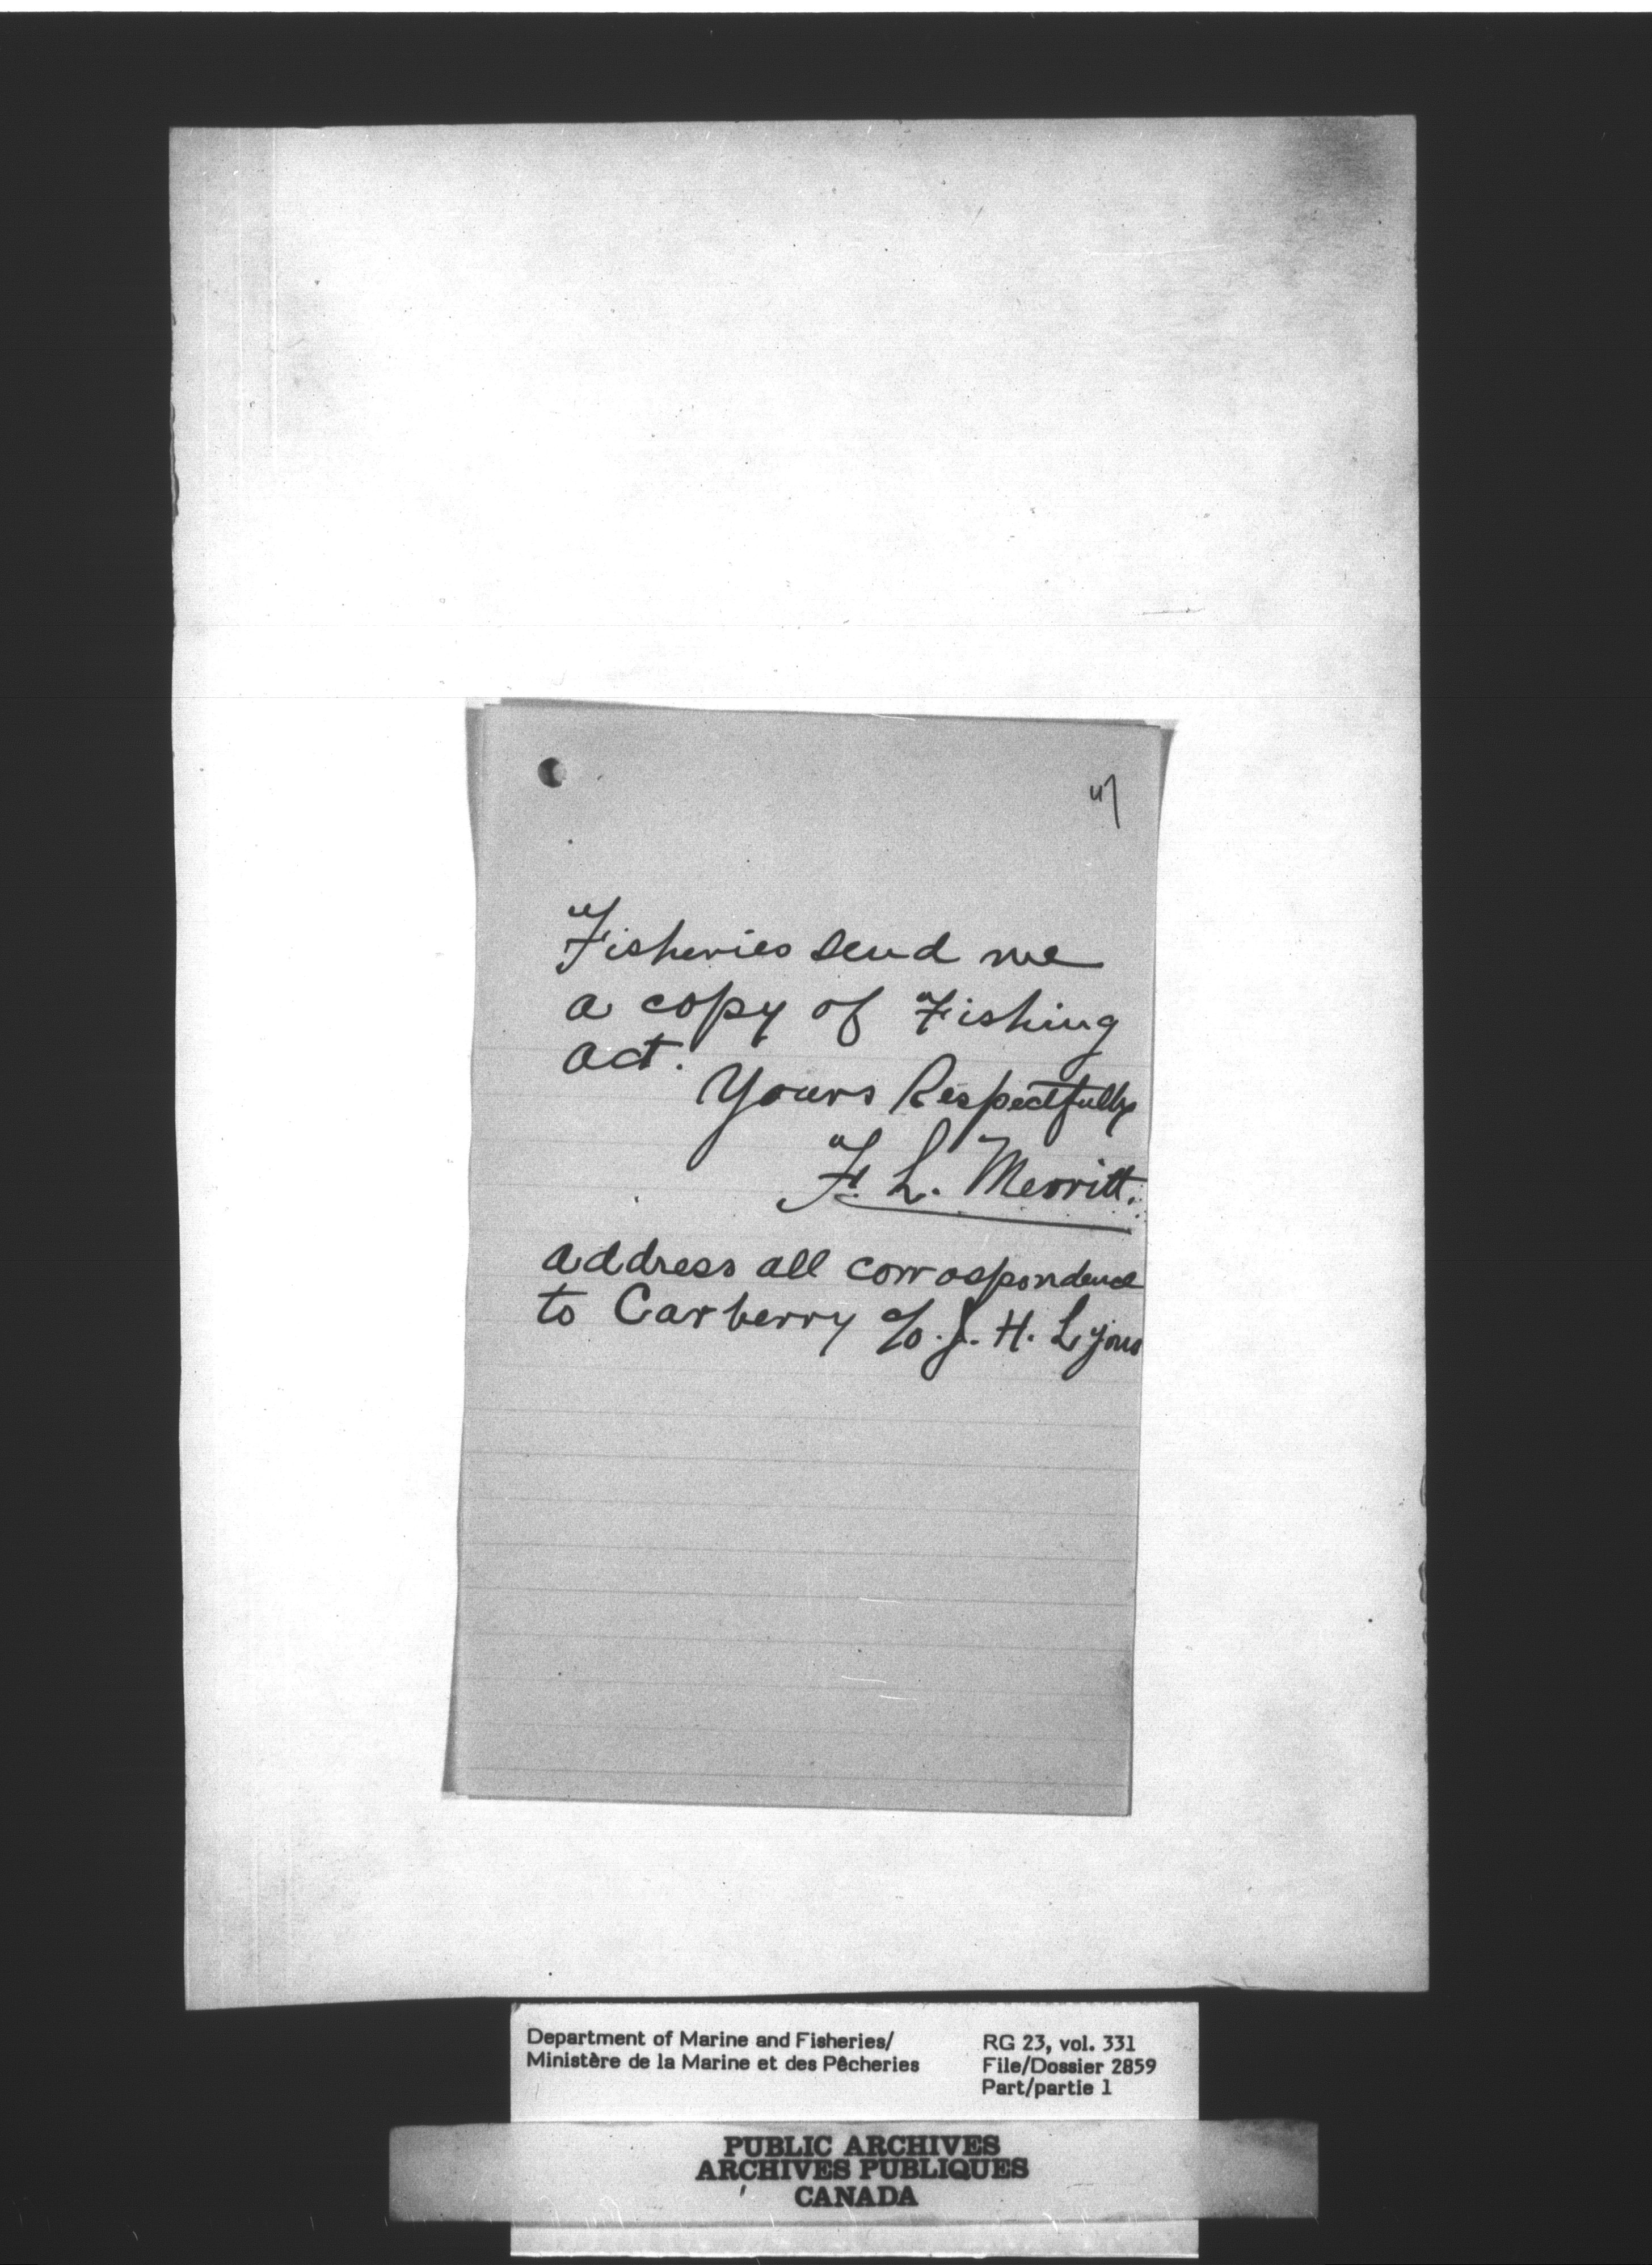 Fisheries send me
a copy of Fishing
act.
Yours Respectfully
F. L. Merritt.
address all corrospondence
to Carberry c/o. J. H. Lyons
Department of Marine and Fisheries/
Ministère de la Marine et des Pêcheries
RG 23, vol. 331
File/Dossier 2859
Part/partie 1
PUBLIC ARCHIVES
ARCHIVES PUBLIQUES
CANADA